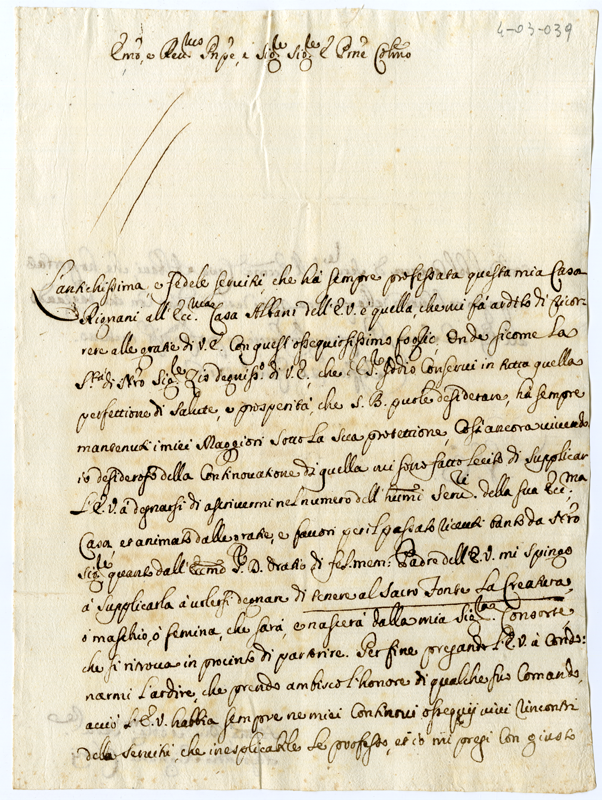 4-03-039
Emo, e Reu.mo Pnpe, e Sig.re Sig.re E Prne Colmo
L'antichissima e fedele seruitù che hà sempre professata questa mia Casa
Rignani all'Ecc.ma Casa Albani dell'E.V. è quella, che mi fà ardito di ricor-
rere alle gratie di V.E. Con quest'ossequiosissimo foglio, Onde sicome La
S.tà di Nro Sig.re Zio degniss.o di V.E., che Iddio Conserui in tutta quella
perfettione di salute, e prosperità che S.B. puole desiderare, hà sempre
mantenuti i miei Maggiori Sotto La sua protettione, Così ancora uiuendo
io desideroso della Continouatione di quella mi sono fatto lecito di supplicar
L'E.V. à degnarsi di ascriuermi nel numero dell' humi Seru.ri della sua Ecc.ma
Casa, et animato dalle gratie, e fauori per il passato riceuti tanto da Nro
Sig.re quanto dall' Eccmo S.r D. Oratio di fel. mem. Padre dell'E.V. mi spingo
à supplicarla à uolersi degnare di tenere al Sacro Fonte La Creatura,
o maschio, ò femina, che sarà, e nascerà dalla mia Sig.ra Consorte
che si ritroua in procinto di partorire. Per fine pregando L'E.V. à Condo-
narmi L'ardire, che prendo ambisco L'honore di qualche suo Comando,
acciò L'E.V. habbia sempre ne miei Continoui ossequij uiui rincontri
della seruitù, che inesplicabile Le professo, et io mi pregi Con giusto